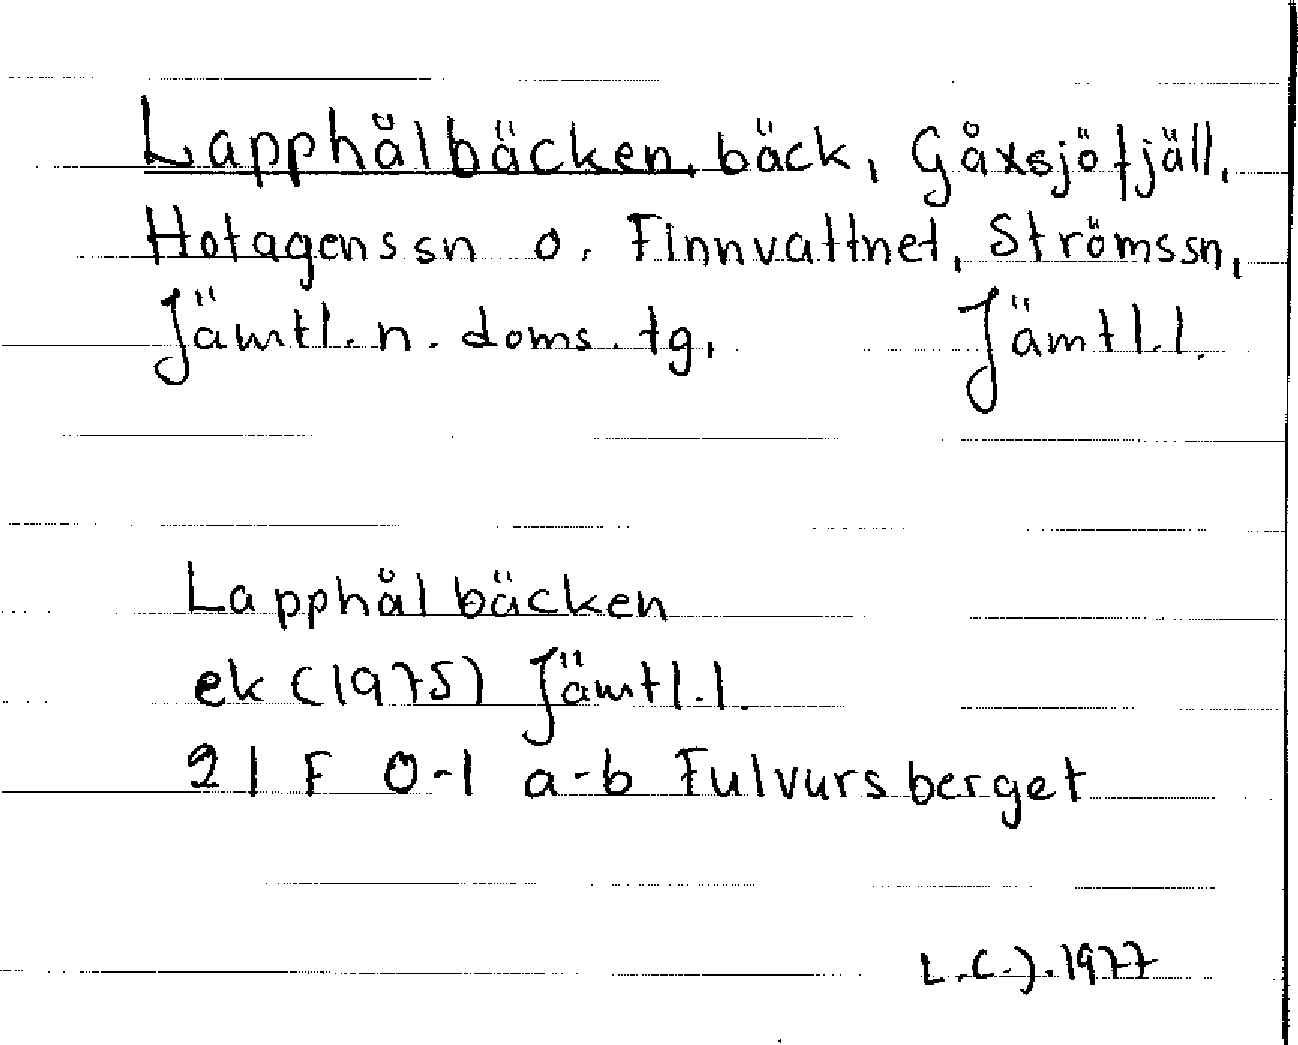 Lapphålbäcken, bäck, Gåxsjöfjäll,
Hotagens sn o. Finnvattnet, Ströms sn,
Jämtl. n. doms. tg, Jämtl.l.
Lapphålbäcken
ek (1975) Jämtl.l.
21 F 0-1 a-b Fulvursberget
L.C.J. 1977